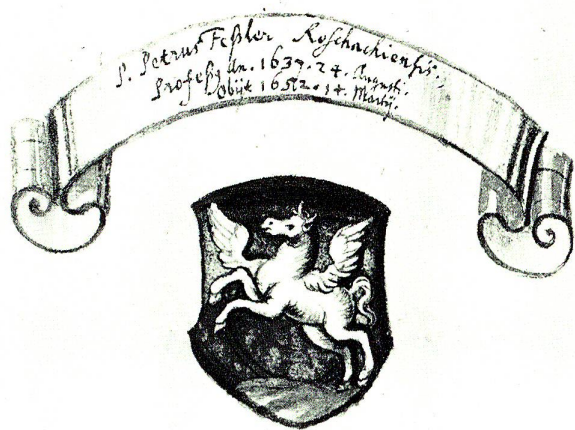 P. Petrus Feßler Roschachiensis.
Profeß: An. 1639. 24. Augusti.
Obijt 1652. 14. Martij.